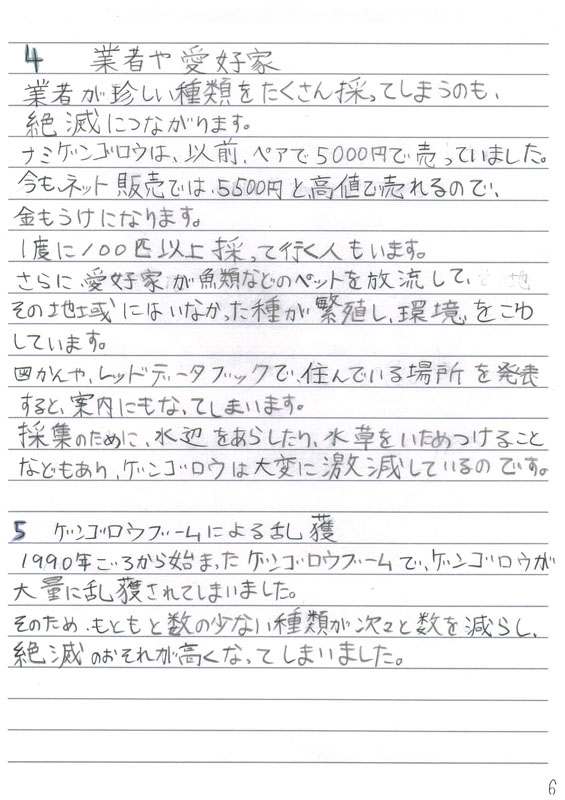 4 業者や愛好家
業者が珍しい種類をたくさん採ってしまうのも、
絶滅につながります。
ナミゲンゴロウは、以前、ペアで5000円で売っていました。
今も、ネット販売では、5500円と、高値で売れるので、
金もうけになります。
1度に100匹以上採って行く人もいます。
さらに、愛好家が魚類などのペットを放流して、
その地域にはいなかった種が繁殖し、環境をこわ
しています。
図かんや、レッドデータブックで、住んでいる場所を発表
すると、案内にもなってしまいます。
採集のために、水辺をあらしたり、水草をいためつけること
などもあり、ゲンゴロウは大変に激減しているのです。
5 ゲンゴロウブームによる乱獲
1990年ごろから始まったゲンゴロウブームで、ゲンゴロウが
大量に乱獲されてしまいました。
そのため、もともと数の少ない種類が次々と数を減らし、
絶滅のおそれが高くなってしまいました。
6